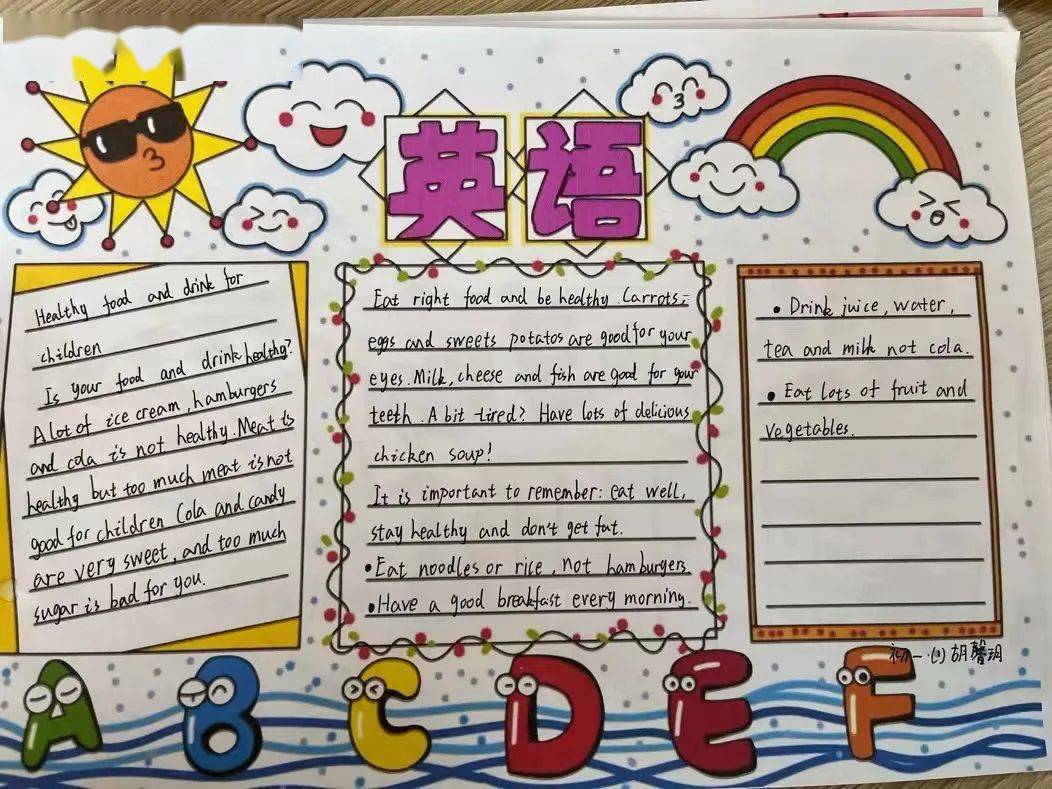 英语
Healthy food and drink for
children
Is your food and drink healthy?
A lot of ice cream, hamburgers
and cola is not healthy. Meat is
healthy but too much meat is not
good for children Cola and candy
are very sweet, and too much
sugar is bad for you.
Eat right food and be healthy. Carrots,
eggs and sweets potatos are good for your
eyes. Milk, cheese and fish are good for your
teeth. A bit tired? Have lots of delicious
chicken soup!
It is important to remember: eat well,
stay healthy and don't get fat.
• Eat noodles or rice, not hamburgers.
• Have a good breakfast every morning.
• Drink juice, water,
tea and milk not cola.
• Eat lots of fruit and
vegetables.
初一.(1) 胡馨
A B C D E F